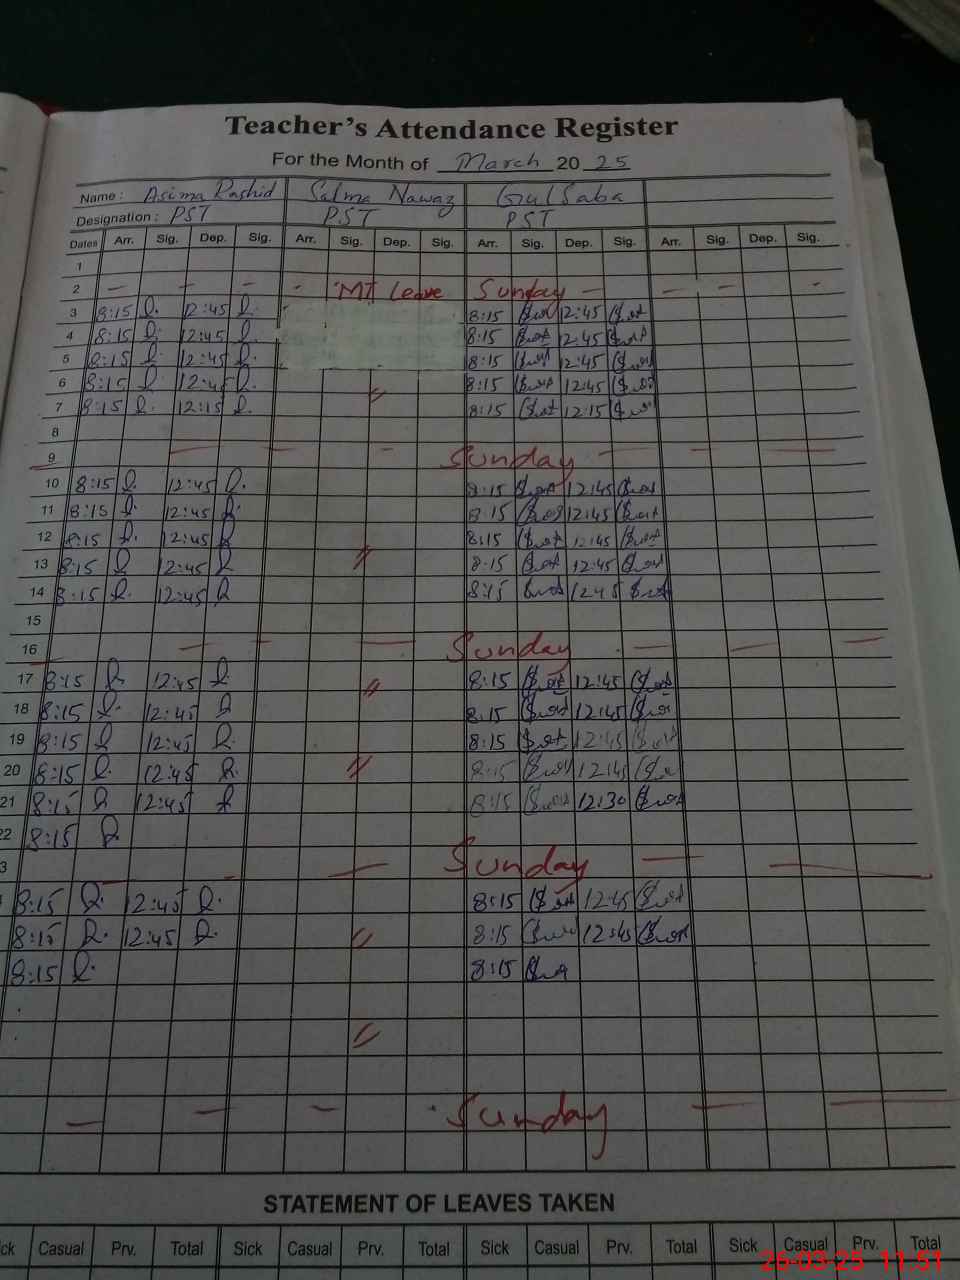 Teacher's Attendance Register
For the Month of March 20 25
Name : Asima Rashid Salma Nawaz Gul Saba
Designation : PST PST PST
Dates Arr. Sig. Dep. Sig. Arr. Sig. Dep. Sig. Arr. Sig. Dep. Sig. Arr. Sig. Dep. Sig.
1
2 Leave Sunday
3 8:15 12:45 8:15 12:45
4 8:15 12:45 8:15 12:45
5 8:15 12:45 8:15 12:45
6 8:15 12:45 8:15 12:45
7 8:15 12:15 8:15 12:15
8
9 Sunday
10 8:15 12:45 8:15 12:45
11 8:15 12:45 8:15 12:45
12 8:15 12:45 8:15 12:45
13 8:15 12:45 8:15 12:45
14 8:15 12:45 8:15 12:45
15
16 Sunday
17 8:15 12:45 8:15 12:45
18 8:15 12:45 8:15 12:45
19 8:15 12:45 8:15 12:45
20 8:15 12:45 8:15 12:45
21 8:15 12:45 8:15 12:30
22 8:15
3 Sunday
8:15 12:45 8:15 12:45
8:15 12:45 8:15 12:45
8:15 8:15
Sunday
STATEMENT OF LEAVES TAKEN
ck Casual Prv. Total Sick Casual Prv. Total Sick Casual Prv. Total Sick Casual Prv. Total
26-03-25 11:51